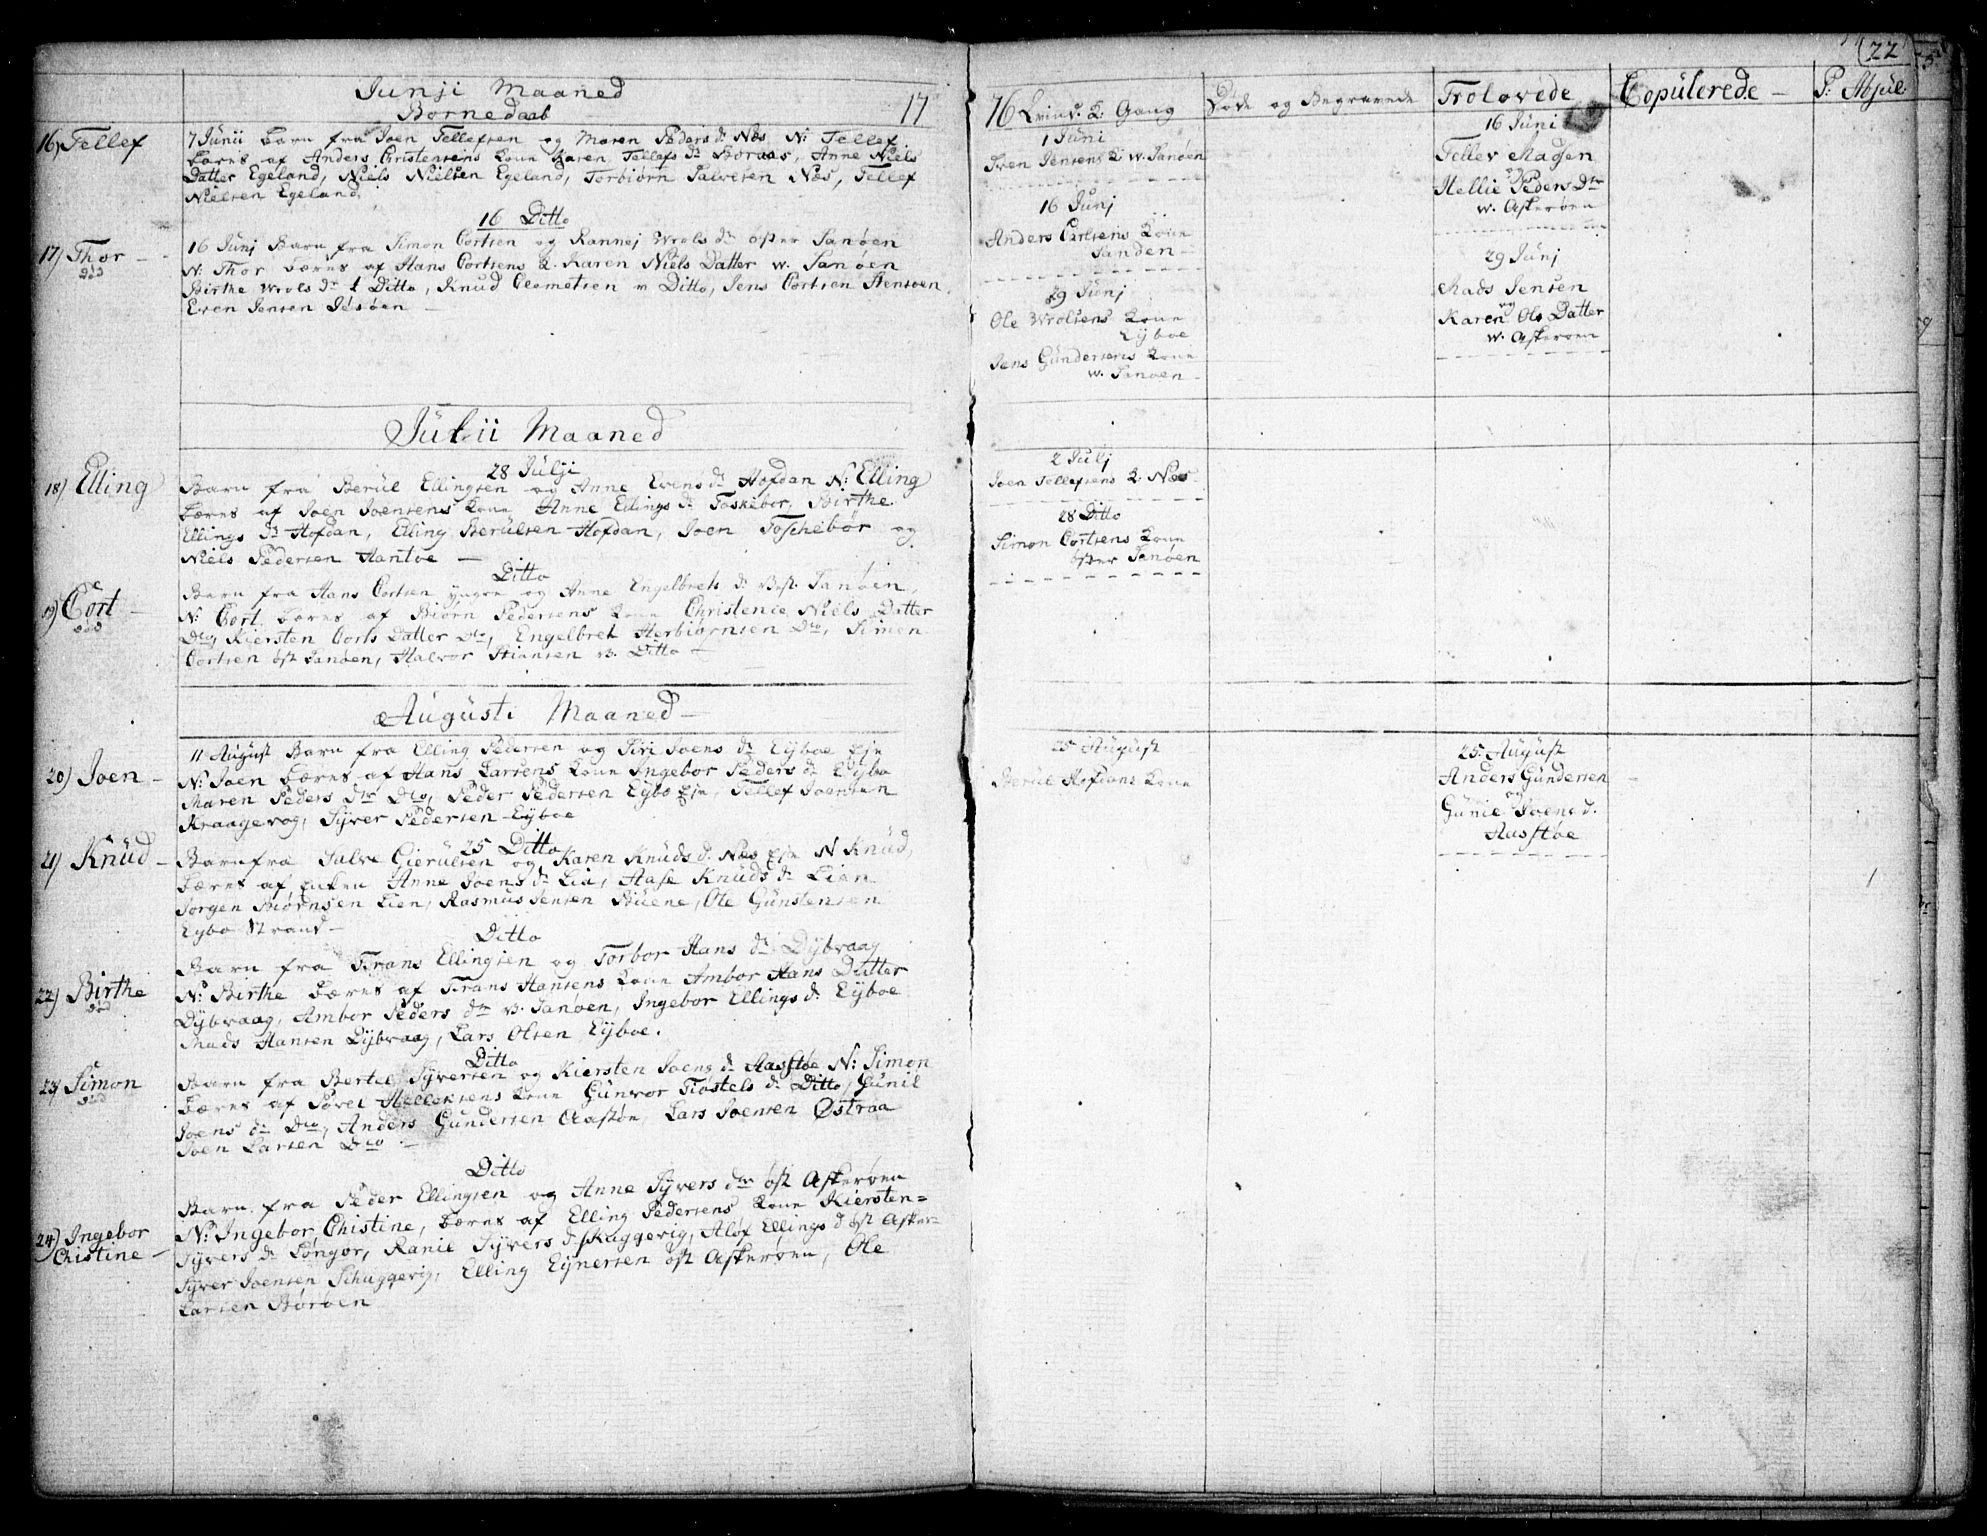 Junji Maaned
Bornedaab
17
16) Tellef
7 Junii Barn fra Joen Tellefsen og Maren Peders Dr Næs N: Tellef
bæres af Anders Christensens Kone Karen Tellefs Dr Boraas, Anne Niels
Datter Egeland, Niels Nielsen Egeland, Torbiørn Salvesen Næs, Tellef
Nielsen Egeland
16 Ditto
17) Thor
død
16 Junj Barn fra Simon Cortsen og Rannej Wrols Dr öster Sanøen
N: Thor bæres af Hans Cortsens K. Karen Niels Datter w. Sanøen
Birthe Wrols Dr Ditto, Knud Clemetsen Ditto, Jens Cortsen Stensøen
Even Jensen Jesøen
Julii Maaned
28 Julji
18) Elling
Barn fra Berul Ellingsen og Anne Evens Dr Hofdan N: Elling
bæres af Joen Joensens Kone Anne Ellings Dr Toskebor, Birthe
Ellings Dr Hofdan, Elling Berulsen Hofdan, Joen Toschebor og
Niels Pedersen Hantoe
Ditto
19) Cort
død
Barn fra Hans Cortsen yngre og Anne Engelbrets Dr Vest. Sanøen,
N: Cort, bæres af Biørn Pedersens Kone Christenie Niels Datter
Dto, Kiersten Corts Datter Dto, Engelbret Herbiørnsen Dto, Simon
Cortsen öst Sanøen, Halvor Stiansen w. Ditto
Augusti Maaned
20) Joen
11 August Barn fra Elling Pedersen og Siri Joens Dr Eijboe Eje
N: Joen bæres af Hans Larsens Kone Ingebor Peders Dr Eijbo
Maren Peders Dtr Dto, Peder Pedersen Eijbo Eje, Tellef Joensen
Kraagevog, Syver Pedersen Eijboe
25 Ditto
21) Knud
Barn fra Salve Gierulsen og Karen Knuds D. Næs Eje N Knud,
bæres af Enken Anne Joens Dr Lia, Aase Knuds Dr Lien
Jorgen Biørnsen Lien, Rasmus Jensen Buene, Ole Gunstensen
Eijbo Strand
Ditto
22) Birthe
død
Barn fra Frans Ellingsen og Torbor Hans Dr Dijbvaag
N: Birthe bæres af Frans Hansens Kone Ambor Hans Datter
Dijbvaag, Ambor Peders Dtr w. Sanøen, Ingebor Ellings D. Eijboe
Mads Hansen Dijbvaag, Lars Olsen Eijboe.
Ditto
23) Simon
død
Barn fra Bertel Syversen og Kiersten Joens Dr Aastøe N: Simon
bæres af Povel Kone Gunvor Tiøstels Dr Ditto, Gunil
Joens Dr Dto, Anders Gundersen Aastøe, Lars Joensen Østraa
Joen Larsen Dto
Ditto
24) Ingebor
Christine
Barn fra Peder Ellingsen og Anne Syvers Dtr öst Askerøen
N: Ingebor, Christine, bæres af Elling Pedersens Kone Kiersten
Syvers Dr Löngor, Ranie Syvers D. Skuggevig, Aløf Ellings D öst Asker=
Syver Joensen Schuggevig, Elling Eijnersen öst Askerøen, Ole
Larsen Børøen
22
76 Qvind. K: Gang
Døde og Begravede
Trolovede
Copulerede
P. Absol.
1 Juni
Even Jensens K w. Sanøen
16 Junj
Anders Cortsens Kone
Sanden
29 Junj
Ole Wrolsens Kone
Eijboe
Jens Gundersens Kone
w. Sanøen
2 Julj
Joen Tellefsens K. Næs
28 Ditto
Simon Cortsens Kone
öster Sanøen
25 August
Berul Hofdans Kone
16 Juni
Tellev Madsen
og
Hellie Peders Dtr
w. Askerøen
29 Junj
Mads Jensen
og
Karen Ols Datter
w. Askerøen
25 August
Anders Gundersen
og
Gunie Joens D.
Aastøe